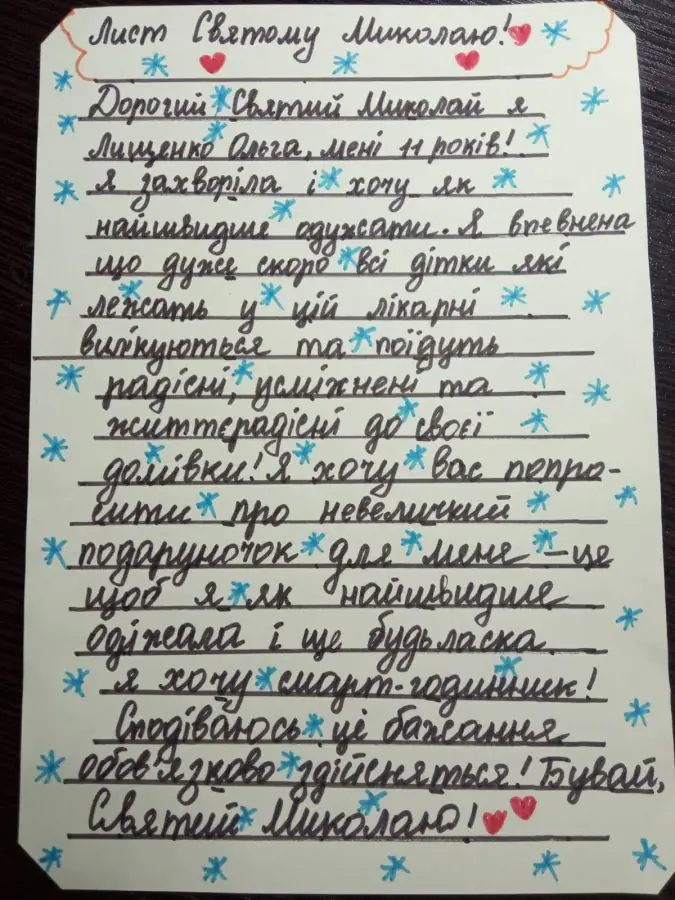 Лист Святому Миколаю!
Дорогий Святий Миколай я
Лищенко Ольга, мені 11 років!
Я захворіла і хочу як
найшвидше одужати. Я впевнена
що дуже скоро всі дітки які
лежать у цій лікарні
вилікуються та поїдуть
радісні, усміхнені та
життєрадісні до своєї
домівки! Я хочу вас попро-
сити про невеличкий
подаруночок для мене - це
щоб я як найшвидше
одіжала і ще будьласка
я хочу смарт-годинник!
Сподіваюсь ці бажання
обов'язково здійсняться! Бувай,
Святий Миколаю!